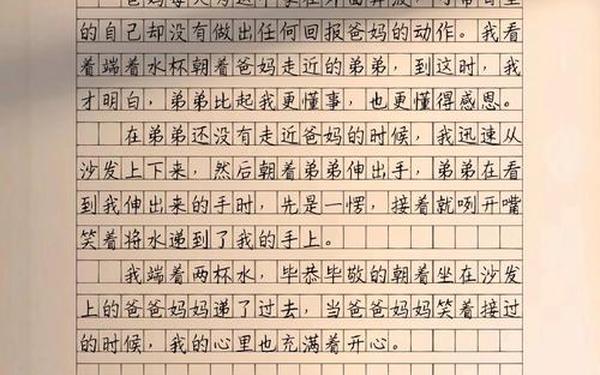 爸妈每天为这个家在外面奔波，
的自己却没有做出任何回报爸妈的动作。我看
着端着水杯朝着爸妈走近的弟弟，到这时，我
才明白，弟弟比起我更懂事，也更懂得感恩。
在弟弟还没有走近爸妈的时候，我迅速从
沙发上下来，然后朝着弟弟伸出手，弟弟在看
到我伸出来的手时，先是一愣，接着就咧开嘴
笑着将水递到了我的手上。
我端着两杯水，毕恭毕敬的朝着坐在沙发
上的爸爸妈妈递了过去，当爸爸妈妈笑着接过
的时候，我的心里也充满着开心。